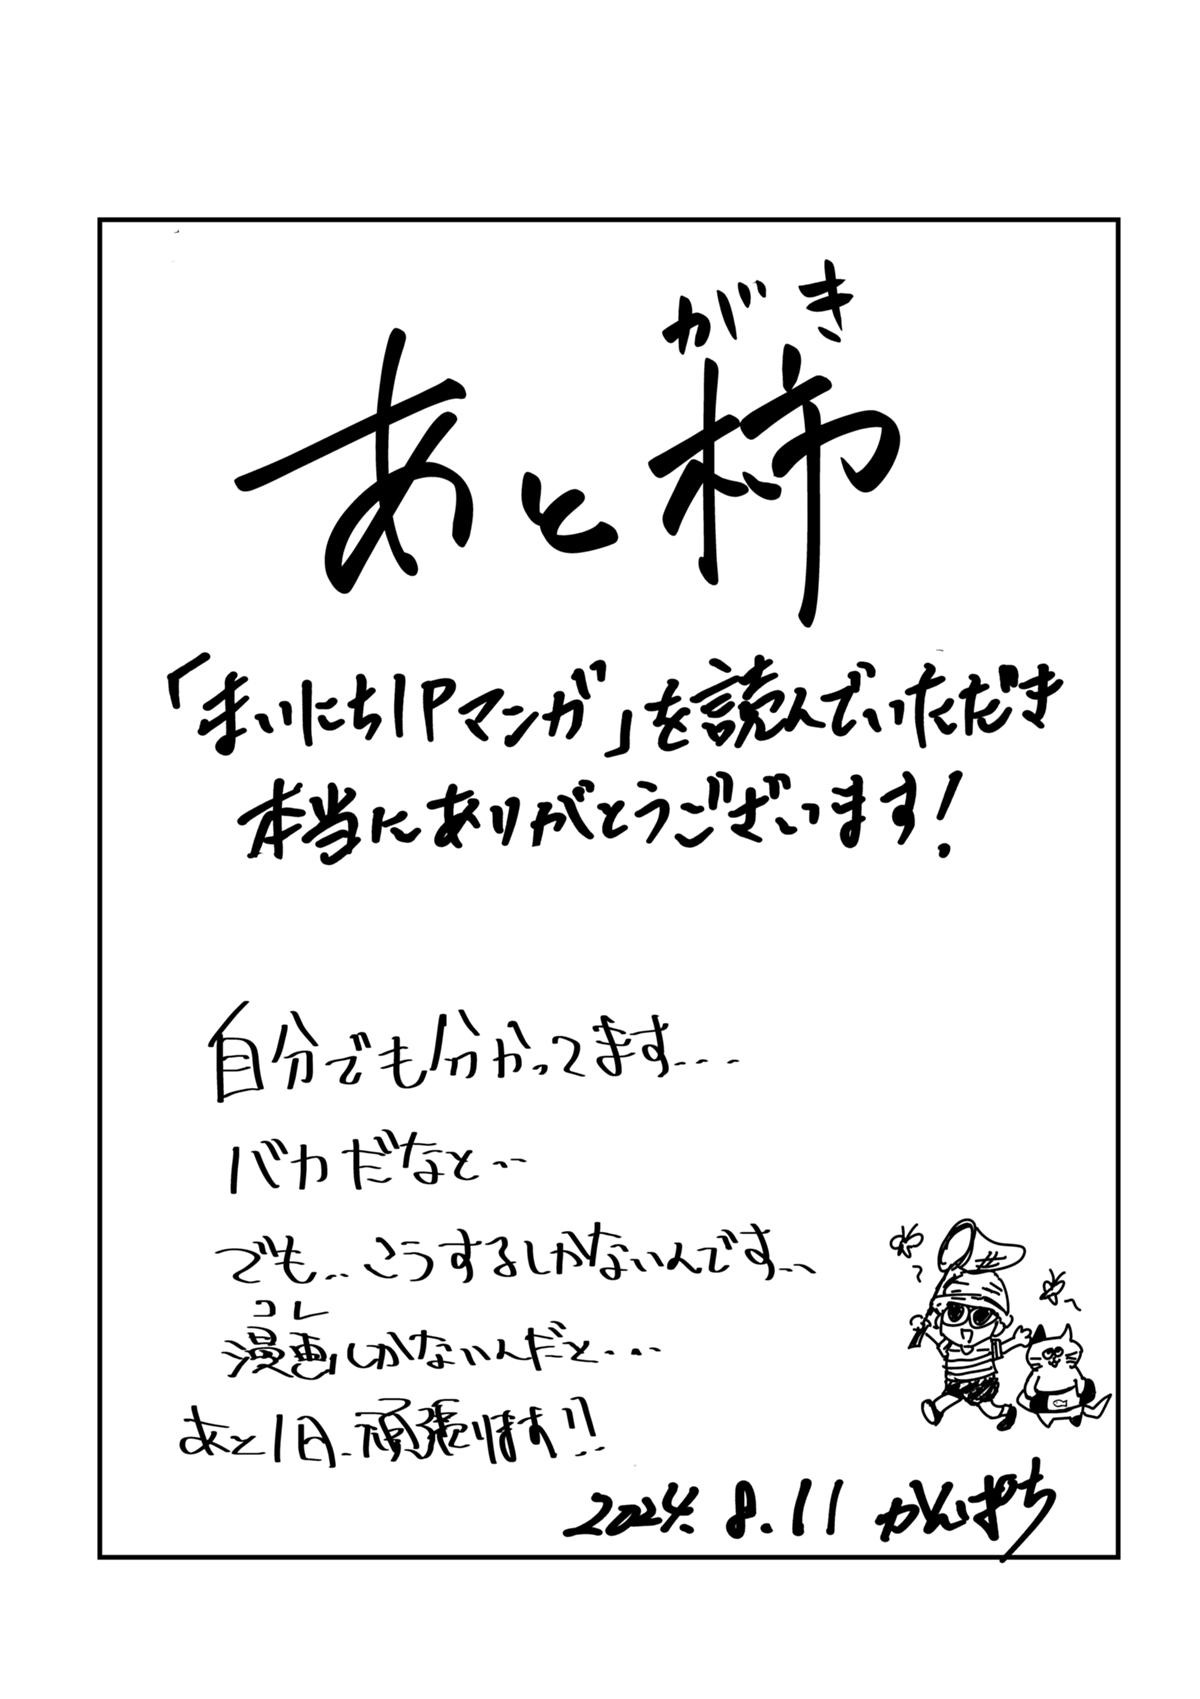 がき
あと柿
「まいにち1Pマンガ」を読んでいただき
本当にありがとうございます!
自分でも分かってます...
バカだなと...
でも...こうするしかないんです...
コレ
漫画しかないんだと...
あと1日、頑張ります!!
2024.8.11 がんぱち